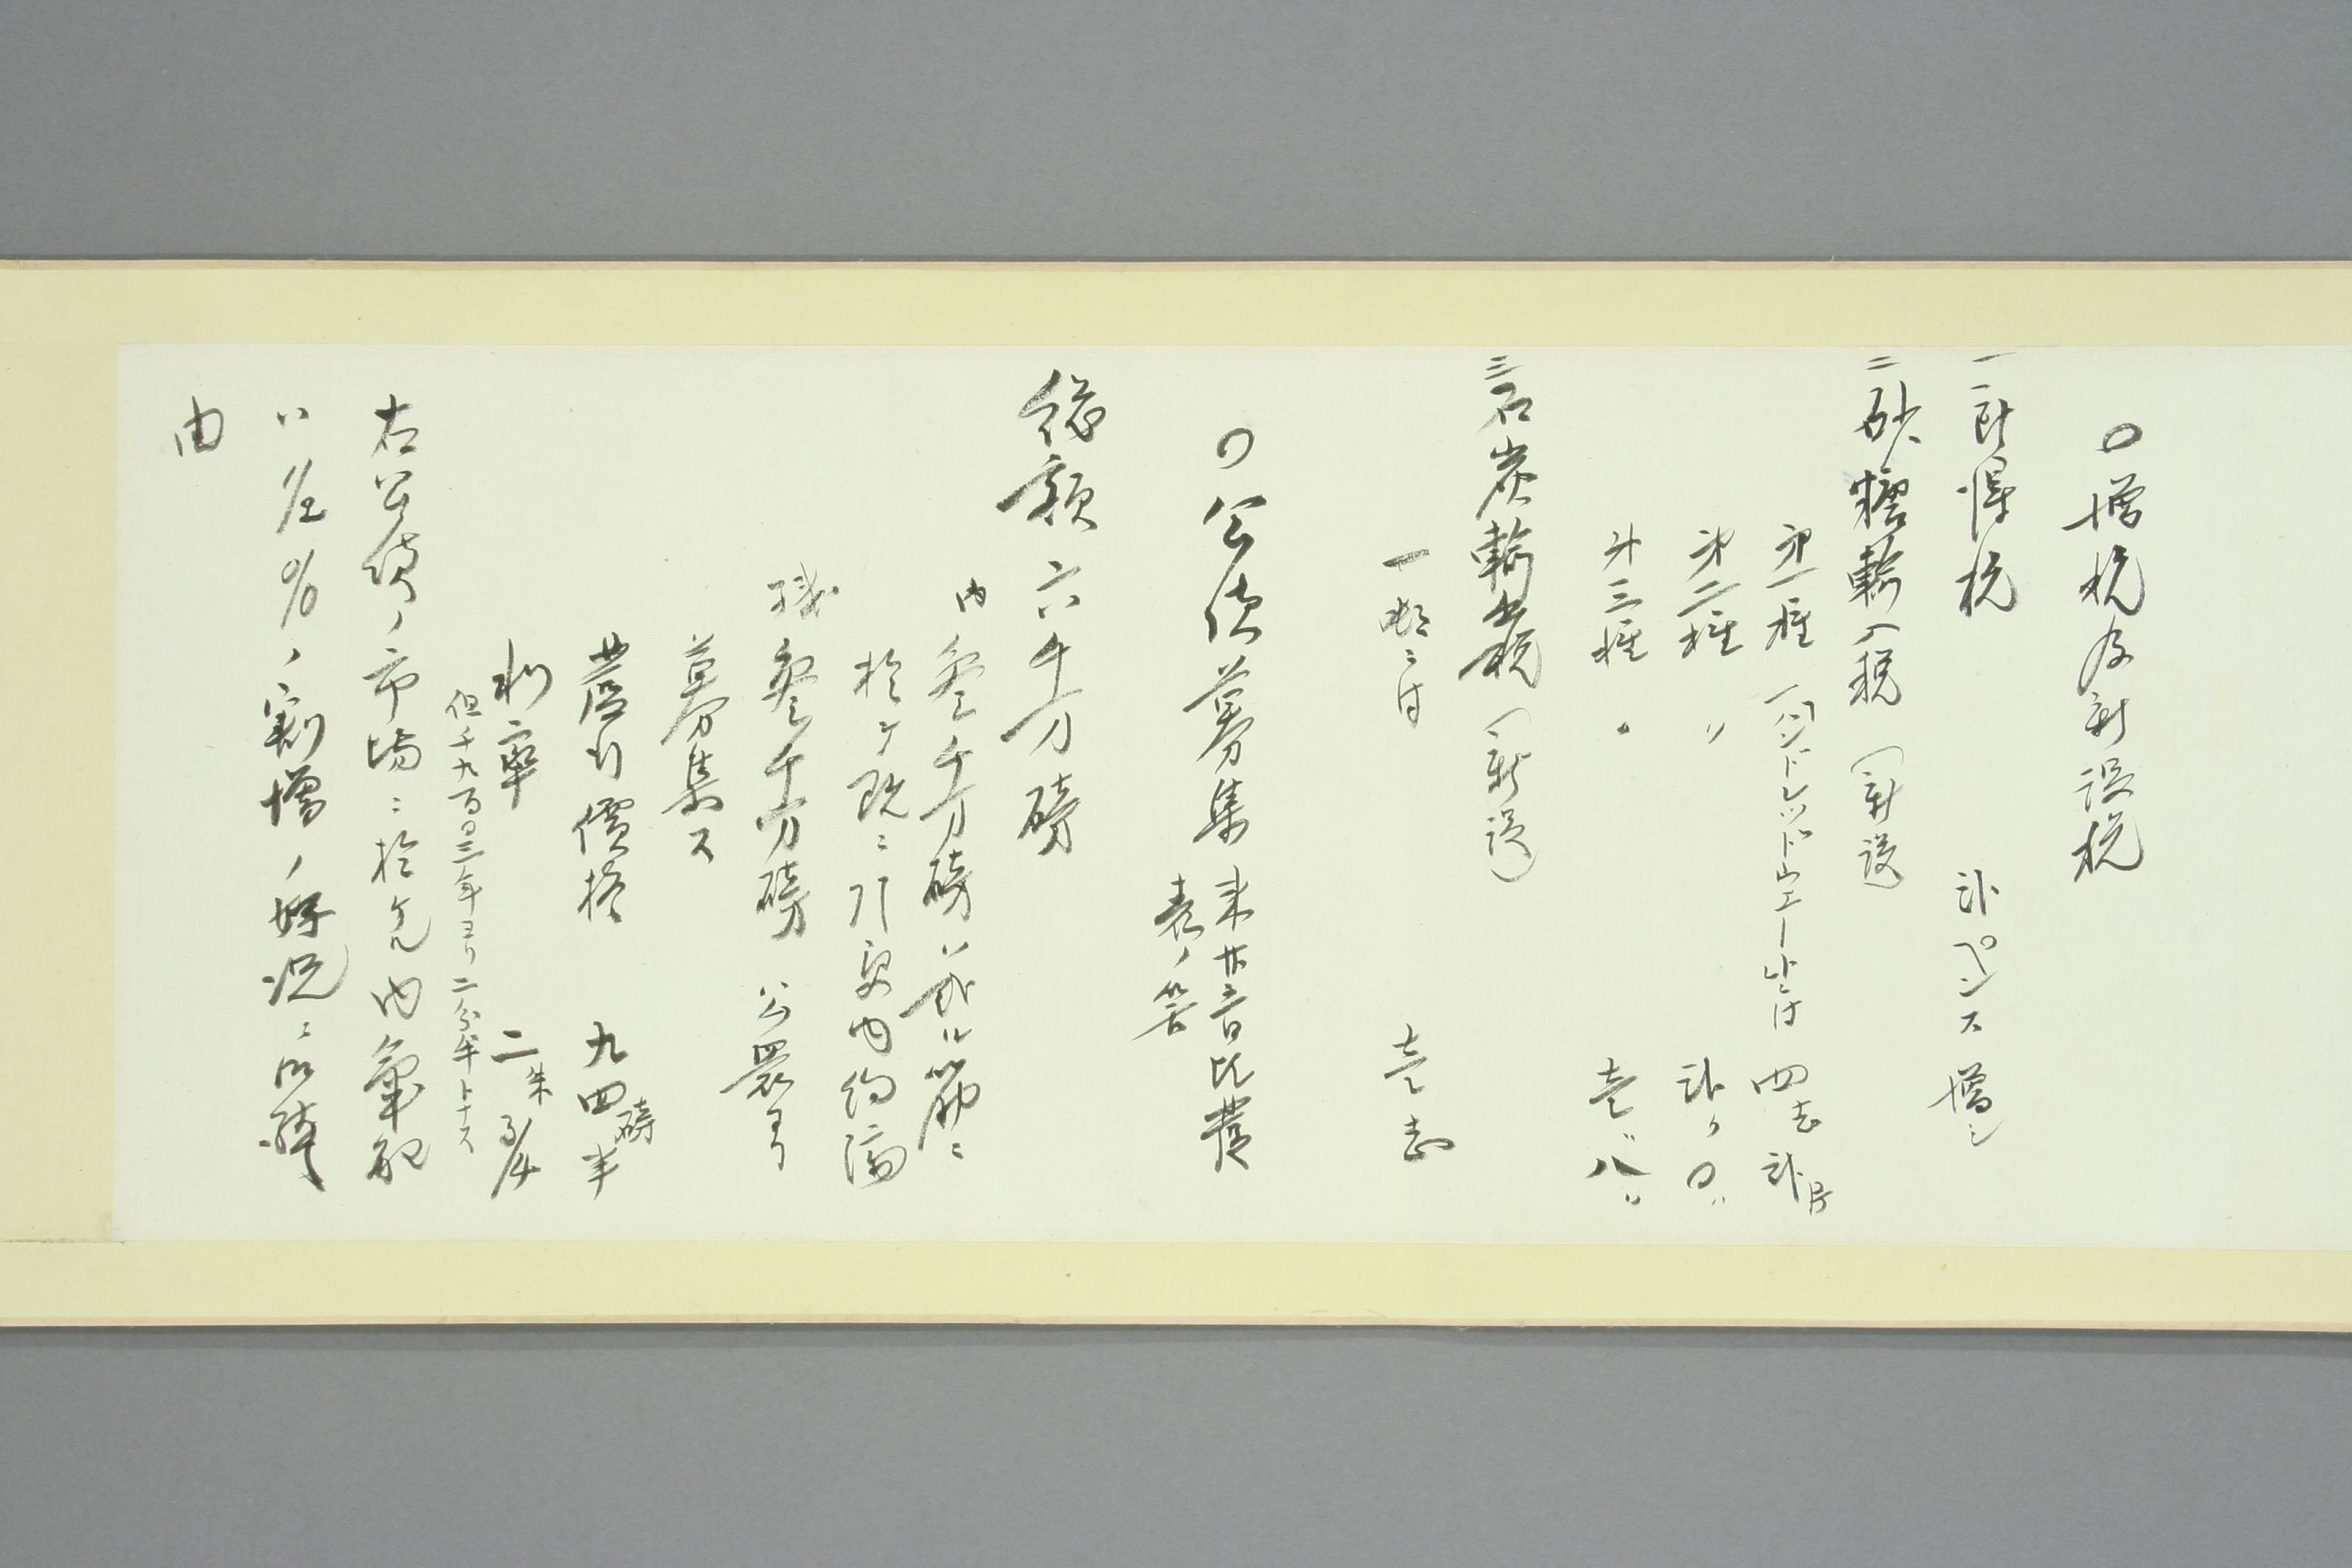 ○増税及新設税
一所得税　弐ペンス増シ
二砂糖輸入税（新設）
第一種　一ハンドレッドウエートニ付　四志弐片
第二種　〃　弐〃〇〃
第三種　〃　壱〃八〃
三石炭輸出税（新設）
一噸ニ付　壱志
○公債募集　来廿二日比発
表ノ筈
総額六千万磅
内参千万磅ハ或ル筋ニ
於テ既ニ引受内約済
残参千万磅　公衆ヨリ
募集ス
発行價格　九四磅半
利率　二朱３／４
但千九百〇三年ヨリ二分半トナス
右公債ノ市場ニ於ケル内氣配
ハ　％ノ割増ノ好況ニ
由